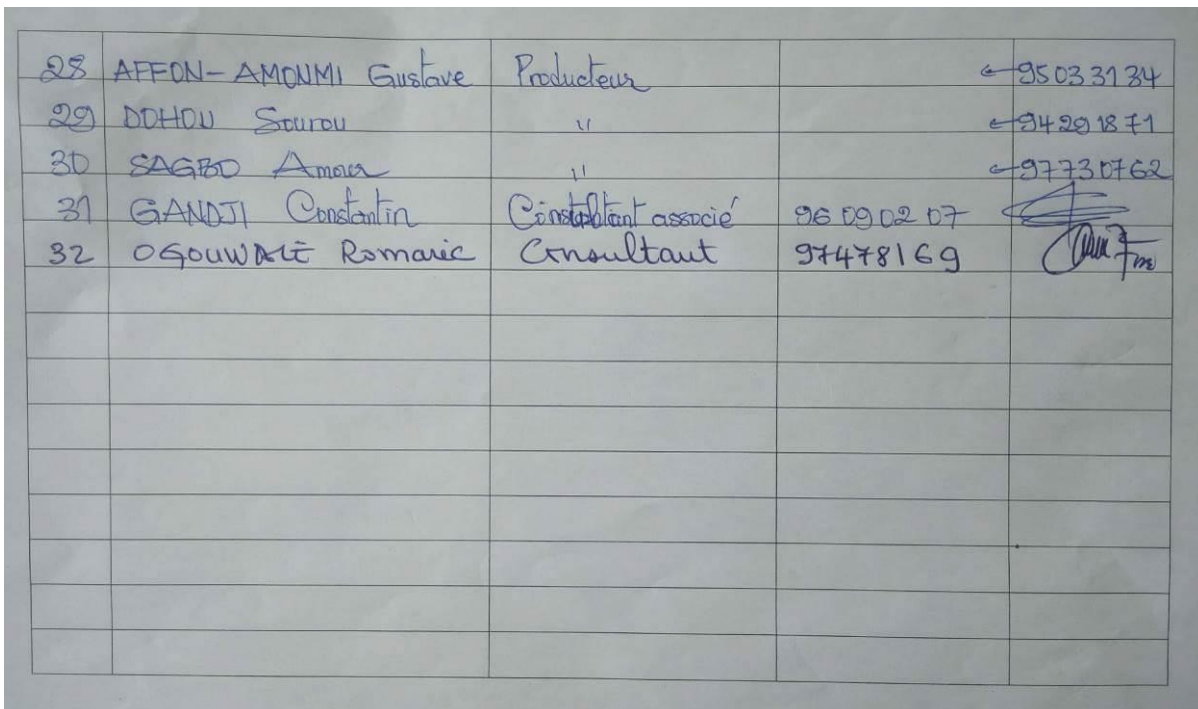 28 AFFON-AMONMI Gustave Producteur ← 95033134
29 DOHOU Sourou " ← 94291871
30 SAGBO Amour " ← 97730762
31 GANDJI Constantin associé 96090207
32 OGOUWALE Romaric Consultant 97478169